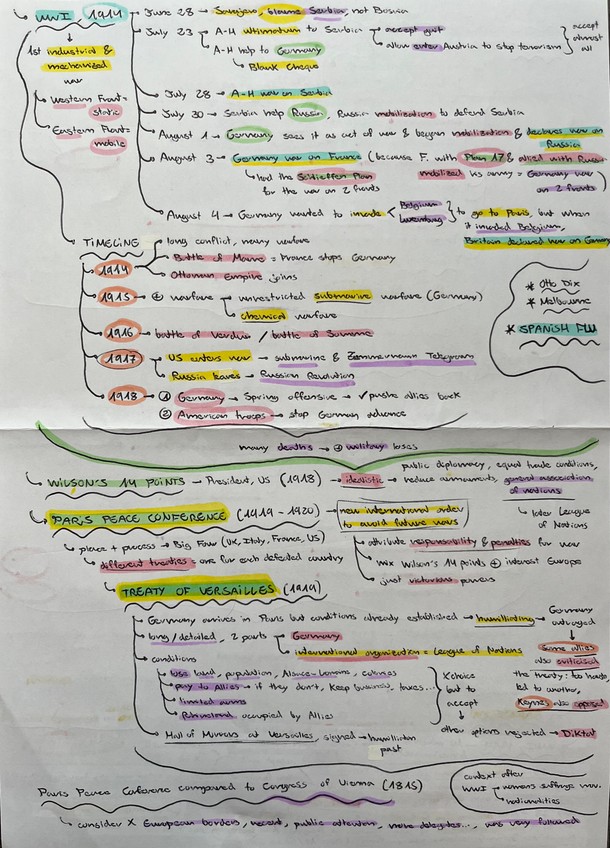 WWI, 1914
→ June 28 → Sarajevo, blame Serbia, not Bosnia
1st industrial &
mechanized
war
Western Front =
static
Eastern Front =
mobile
July 23 → A-H ultimatum to Serbia → accept guilt
allow enter Austria to stop terrorism } accept
almost
all
A-H help to Germany
↳ Blank Cheque
July 28 → A-H war on Serbia
July 30 → Serbia help Russia, Russia mobilization to defend Serbia
August 1 → Germany sees it as act of war & began mobilization & declares war on
Russia
August 3 → Germany war on France (because F. with Plan 17 & allied with Russia
mobilized his army = Germany war
on 2 fronts)
↳ had the Schlieffen Plan
for the war on 2 fronts
August 4 → Germany wanted to invade < Belgium
Luxemburg } to go to Paris, but when
it invaded Belgium,
Britain declared war on Germany
TIMELINE
1914
long conflict, many warfare
Battle of Marne = France stops Germany
Ottoman Empire joins
1915 → ⊕ warfare
unrestricted submarine warfare (Germany)
chemical warfare
1916 → battle of Verdun / battle of Somme
1917
US enters war → submarine & Zimmermann Telegram
Russia leaves → Russian Revolution
1918
① Germany → Spring offensive → ✓ pushe allies back
② American troops → stop German advance
* Otto Dix
* Melbourne
* SPANISH FLU
many deaths → ⊕ military loses
WILSON'S 14 POINTS → President, US (1918) → idealistic
public diplomacy, equal trade conditions,
reduce armaments, general association
of nations
↳ later League
of Nations
PARIS PEACE CONFERENCE (1919 - 1920) → new international order
to avoid future wars
↳ place + process → Big Four (UK, Italy, France, US)
↳ different treaties = one for each defeated country
attribute responsibility & penalties for war
mix Wilson's 14 points ⊕ interest Europe
just victorious powers
TREATY OF VERSAILLES (1919)
Germany arrives in Paris but conditions already established → humiliating → Germany
outraged
long/detailed, 2 parts
Germany
international organization = League of Nations
Some allies
also criticised
the treaty: too harsh,
led to another,
Keynes also opposed
conditions
lose land, population, Alsace-Lorraine, colonies
pay to Allies → if they don't, keep business, taxes...
limited arms
Rhineland occupied by Allies
X choice
but to
accept
↓
other options rejected → Diktat
Hall of Mirrors at Versailles, signed → humiliation
past
Paris Peace Conference compared to Congress of Vienna (1815)
↳ consider X European borders, recent, public attention, more delegates..., was very followed
context after
WWI → womens suffrage mov.
nationalities